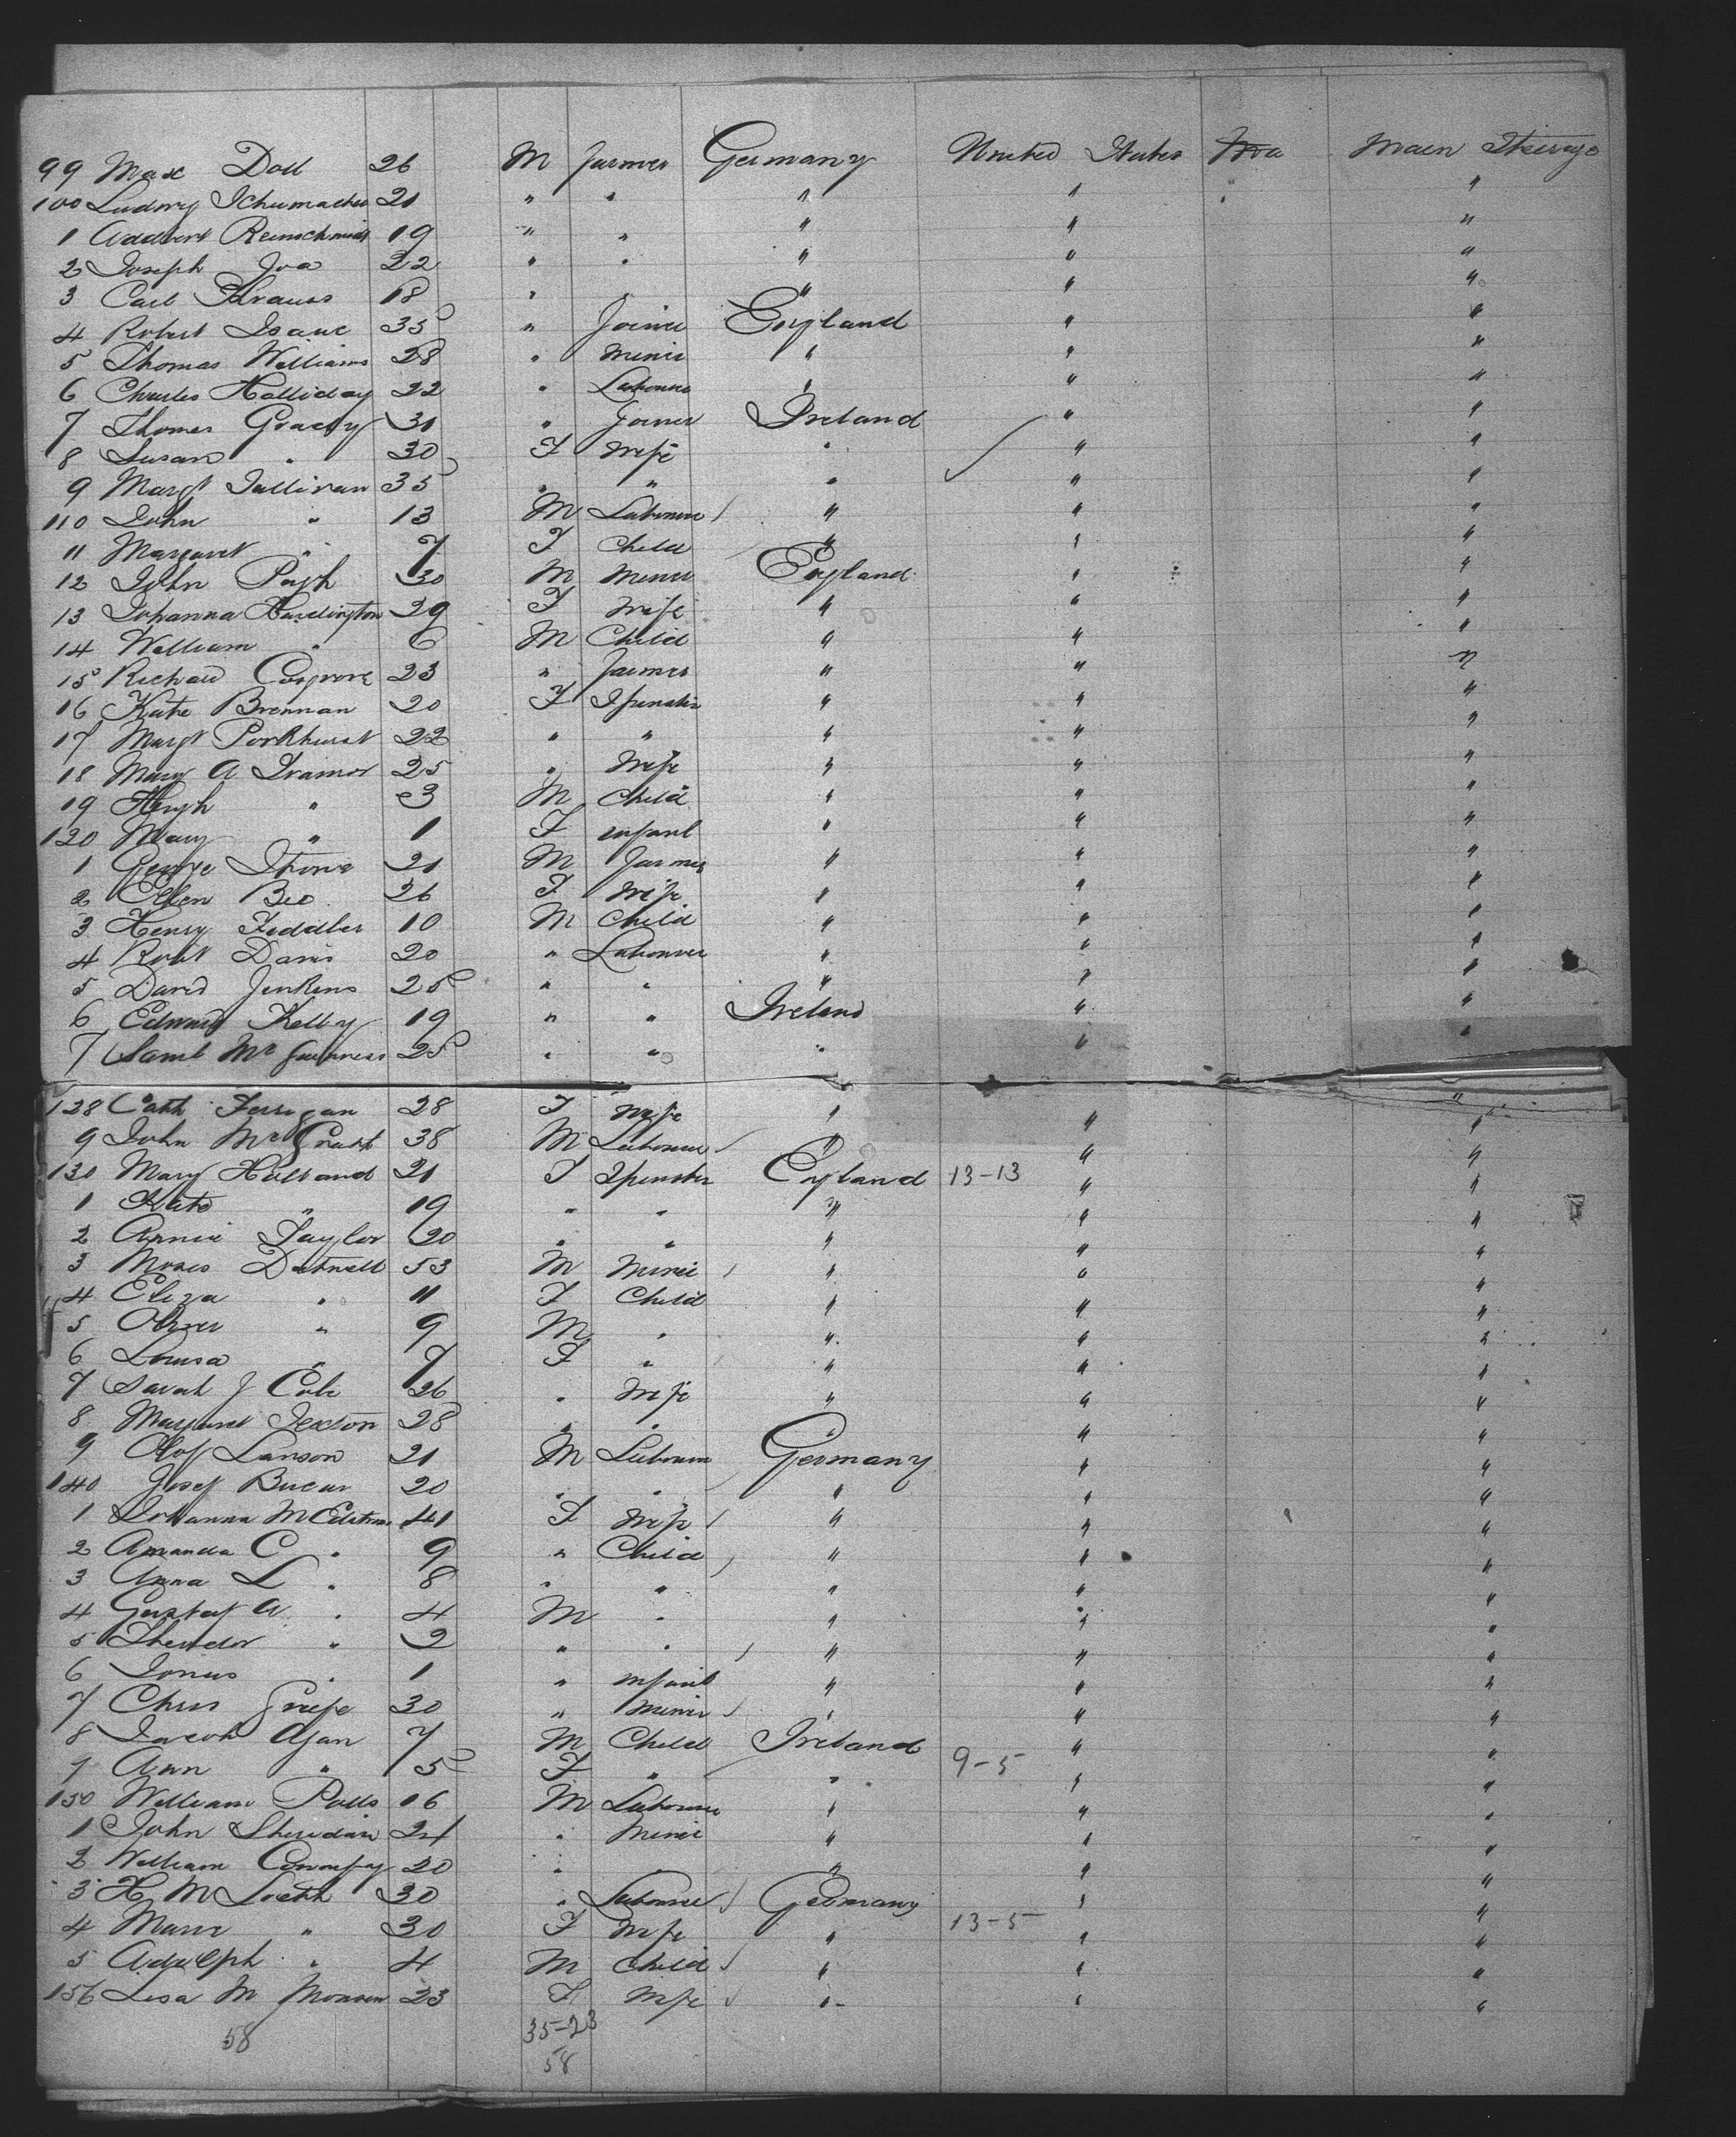 99 Max Doll 26 M Farmer Germany United States Main Steerage
100 Ludwig Schumacher 21 " " " " "
1 Reinschmidt 19 " " " " "
2 Joseph Joa 22 " " " " "
3 Carl Krauss 18 " " " " "
4 Robert Isaac 35 " Joiner England " "
5 Thomas Williams 28 " Miner " " "
6 Charles Halliday 22 " Labourer " " "
7 Thomas Gracey 31 " Joiner Ireland " "
8 Susan " 30 F Wife " " "
9 Margt Sullivan 35 " " " " "
110 John " 13 M Labourer " " "
11 Margaret " 7 F Child " " "
12 John Pugh 30 M Miner England " "
13 Johanna Hardington 29 F Wife " " "
14 William " 6 M Child " " "
15 Richard Cosgrove 23 " Farmer " " "
16 Kate Brennan 20 F Spinster " " "
17 Margt Porkhurst 22 " " " " "
18 Mary A Tramor 25 " Wife " " "
19 Hugh " 3 M Child " " "
120 Mary " 1 F infant " " "
1 George Stone 21 M Farmer " " "
2 Ellen Beo 26 F Wife " " "
3 Henry Feddler 10 M Child " " "
4 Robt Davis 20 " Labourer " " "
5 David Jenkins 25 " " " " "
6 Edward Kelly 19 " " Ireland " "
7 Saml McGuinness 25 " " " " "
128 Cath Ferrigan 28 F Wife " " "
9 John McGrath 38 M Labourer " " "
130 Mary Hilland 21 F Spinster England 13-13 " "
1 Kate " 19 " " " " "
2 Annie Taylor 20 " " " " "
3 Moses Datnell 53 M Miner " " "
4 Eliza " 11 F Child " " "
5 Oliver " 9 M " " " "
6 Louisa " 7 F " " " "
7 Sarah J Cole 26 " Wife " " "
8 Margaret Sexton 28 " " " " "
9 Olof Larson 21 M Labourer Germany " "
140 Josef Bucar 20 " " " " "
1 Johanna M Edstrom 41 F Wife " " "
2 Amanda C " 9 " Child " " "
3 Anna L " 8 " " " " "
4 Gustaf A " 4 M " " " "
5 Theodor " 2 " " " " "
6 Jonas " 1 " infant " " "
7 Chris Greife 30 " Miner " " "
8 Jacob Agan 7 M Child Ireland " "
9 Ann " 5 F " " 9-5 " "
150 William Polls 16 M Labourer " " "
1 John Sheridan 24 " Miner " " "
2 William 20 " " " " "
3 H M Loeth 30 " Labourer Germany " "
4 Marie " 30 F Wife " 13-5 " "
5 Adolph " 4 M Child " " "
156 Lisa M Monson 23 F Wife " " "
58 35-23
58